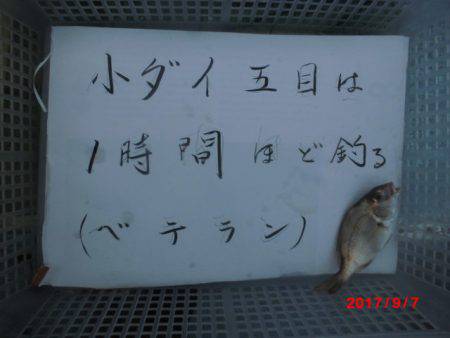 小ダイ五目は
1時間ほど釣る
(ベテラン)
2017/9/7